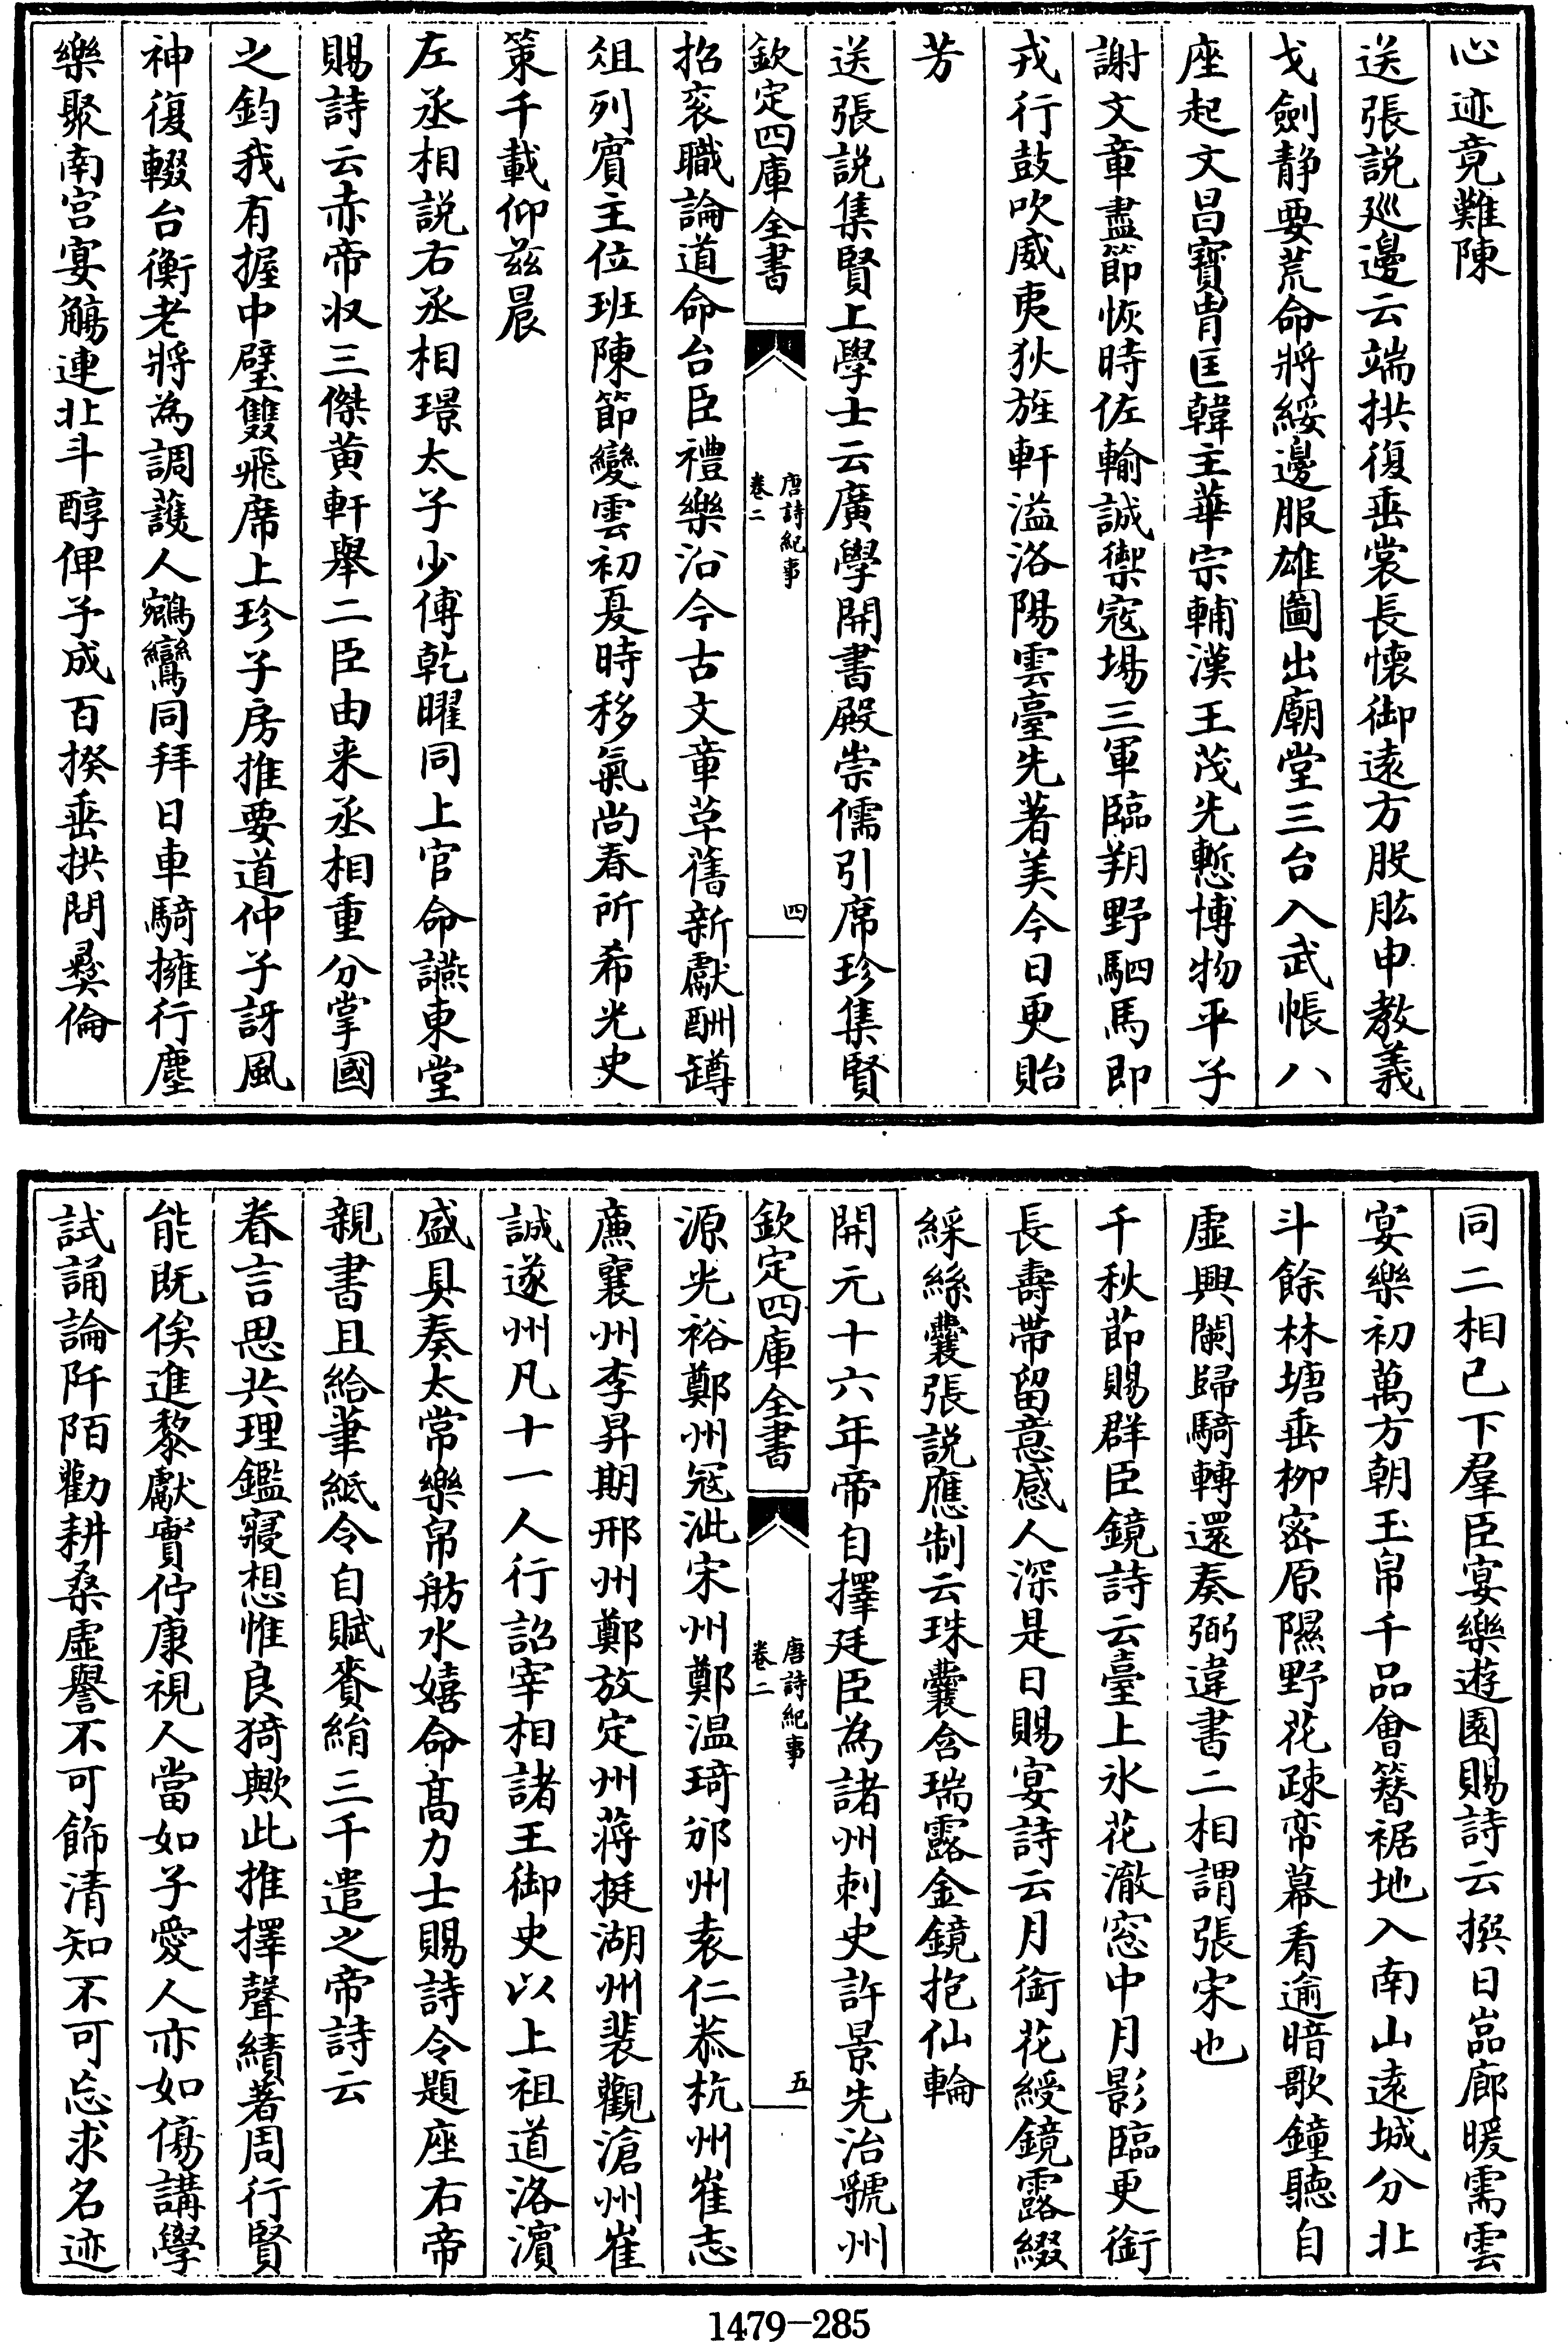 心迹竟難陳
送張説廵邊云端拱復垂裳長懷御遠方股肱申教義
戈劍静要荒命將綏邊服雄圖出廟堂三台入武帳八
座起文昌寶胄匡韓主華宗輔漢王茂先慙博物平子
謝文章盡節恢時佐輸誠禦寇場三軍臨朔野駟馬即
戎行鼓吹威夷狄旌軒溢洛陽雲臺先著美今日更貽
芳
送張説集賢上學士云廣學開書殿崇儒引席珍集賢
欽定四庫全書
唐詩紀事
卷二
四
招衮職論道命台臣禮樂沿今古文章草舊新獻酬罇
俎列賓主位班陳節變雲初夏時移氣尚春所希光史
策千載仰兹晨
左丞相説右丞相璟太子少傅乾曜同上官命讌東堂
賜詩云赤帝収三傑黄軒舉二臣由来丞相重分掌國
之鈞我有握中璧雙飛席上珍子房推要道仲子訝風
神復輟台衡老將為調䕶人鵷鸞同拜日車騎擁行塵
樂聚南宫宴觴連北斗醇俾予成百揆垂拱問彛倫
同二相已下羣臣宴樂遊園賜詩云撰日嵓廊暖需雲
宴樂初萬方朝玉帛千品會簪裾地入南山遠城分北
斗餘林塘垂柳宻原隰野花疎帟幕看逾暗歌鐘聽自
虚興闌歸騎轉還奏弼違書二相謂張宋也
千秋節賜群臣鏡詩云臺上氷花澈窓中月影臨更銜
長壽帶留意感人深是日賜宴詩云月銜花綬鏡露綴
綵絲囊張説應制云珠囊含瑞露金鏡抱仙輪
開元十六年帝自擇廷臣為諸州刺史許景先治虢州
欽定四庫全書
唐詩紀事
卷二
五
源光裕鄭州冦泚宋州鄭温琦邠州袁仁恭杭州崔志
亷襄州李昇期邢州鄭放定州蔣挺湖州裴觀滄州崔
誠遂州凡十一人行詔宰相諸王御史以上祖道洛濵
盛具奏太常樂帛舫水嬉命髙力士賜詩令題座右帝
親書且給筆紙令自賦賚絹三千遣之帝詩云
眷言思共理鑑寢想惟良猗歟此推擇聲績著周行賢
能既俟進黎獻實佇康視人當如子愛人亦如傷講學
試誦論阡陌勸耕桑虚譽不可飾清知不可忘求名迹
1479—285